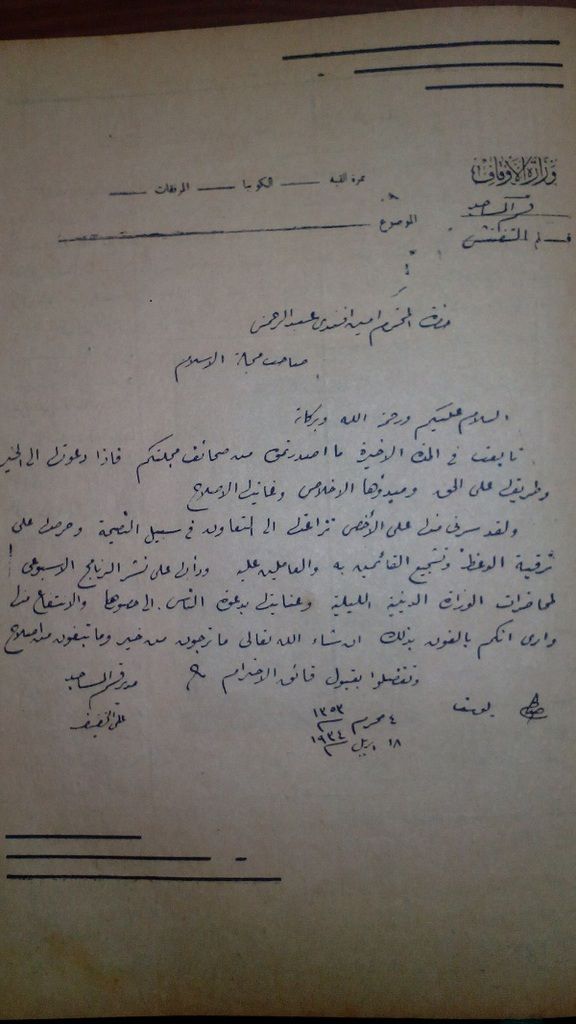 وزارة الأوقاف
قسم المساجد
قلم التفتيش
نمرة القيد — الكوبيا — المرفقات —
الموضوع
حضرة المحترم امين افندى عبد الرحمن
صاحب مجلة الاسلام
السلام عليكم ورحمة الله وبركاته
تابعت فى المدة الاخيرة ما اصدرتموه من صحائف مجلتكم فاذا دعوتها الى الخير
وطريقها على الحق ومبدؤها الاخلاص وغايتها الاصلاح
ولقد سرنى منها على الأخص نزاعها الى التعاون فى سبيل النصيحة وحرصها على
ترقية الوعظ وتشجيع القائمين به والعاملين عليه ودأبها على نشر البرنامج الاسبوعى
لمحاضرات الوزارة الدينية الليلية وعنايتها بدعوة الناس الى حضورها والانتفاع منها
وارى انكم بالغون بذلك ان شاء الله تعالى ما ترجون من خير وما تبغون من اصلاح
وتفضلوا بقبول فائق الاحترام
مدير قسم المساجد
يوسف
٤ محرم ١٣٥٣
١٨ ابريل ١٩٣٤
على الخفيف